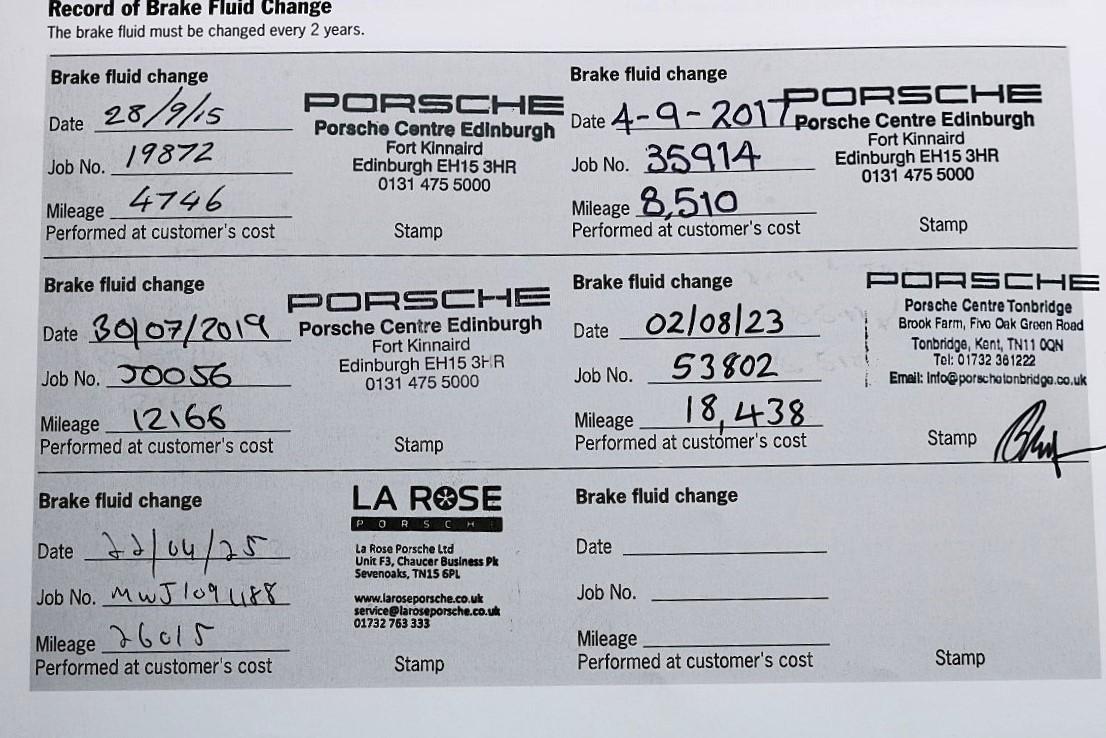 Record of Brake Fluid Change
The brake fluid must be changed every 2 years.
Brake fluid change
Date 28/9/15
Job No. 19872
Mileage 4746
Performed at customer's cost
PORSCHE
Porsche Centre Edinburgh
Fort Kinnaird
Edinburgh EH15 3HR
0131 475 5000
Stamp
Brake fluid change
Date 4-9-2017
Job No. 35914
Mileage 8,510
Performed at customer's cost
PORSCHE
Porsche Centre Edinburgh
Fort Kinnaird
Edinburgh EH15 3HR
0131 475 5000
Stamp
Brake fluid change
Date 30/07/2019
Job No. J0056
Mileage 12166
Performed at customer's cost
PORSCHE
Porsche Centre Edinburgh
Fort Kinnaird
Edinburgh EH15 3HR
0131 475 5000
Stamp
Brake fluid change
Date 02/08/23
Job No. 53802
Mileage 18,438
Performed at customer's cost
PORSCHE
Porsche Centre Tonbridge
Brook Farm, Five Oak Green Road
Tonbridge, Kent, TN11 0QN
Tel: 01732 361222
Email: Info@porschetonbridge.co.uk
Stamp
Brake fluid change
Date 22/04/25
Job No. MWJ109488
Mileage 26015
Performed at customer's cost
LA ROSE
PORSCHE
La Rose Porsche Ltd
Unit F3, Chaucer Business Pk
Sevenoaks, TN15 6PL
www.laroseporsche.co.uk
service@laroseporsche.co.uk
01732 763 333
Stamp
Brake fluid change
Date
Job No.
Mileage
Performed at customer's cost
Stamp